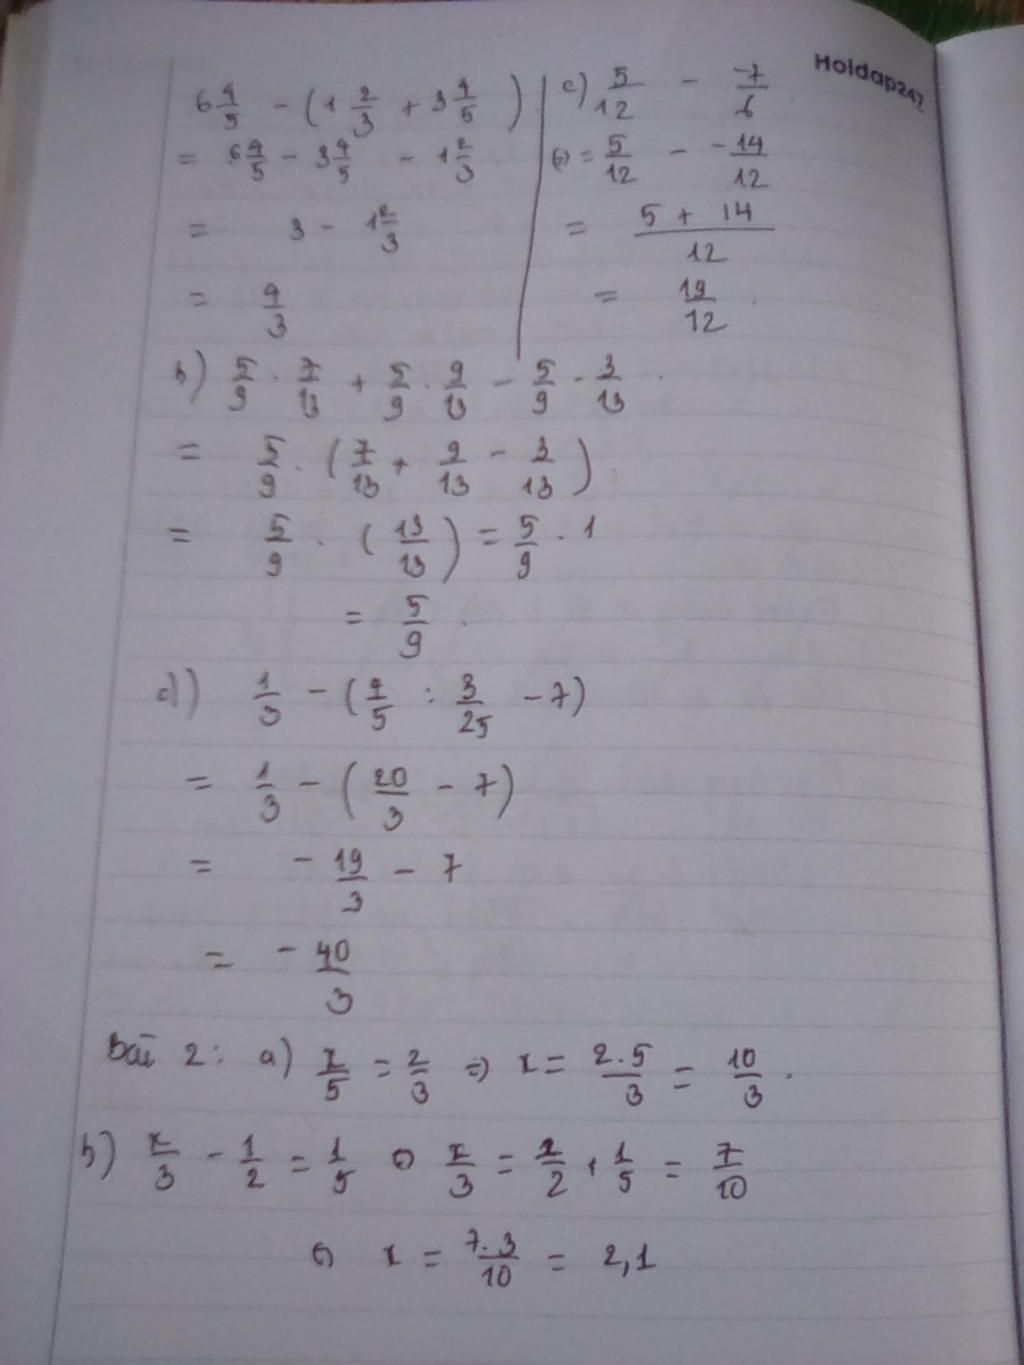 Hoidap247
6 4/5 - (1 2/3 + 3 4/5)
= 6 4/5 - 3 4/5 - 1 2/3
= 3 - 1 2/3
= 4/3
c) 5/12 - -7/6
= 5/12 - -14/12
= 5 + 14/12
= 19/12
b) 5/9 . 7/13 + 5/9 . 9/13 - 5/9 . 3/13
= 5/9 . (7/13 + 9/13 - 3/13)
= 5/9 . (13/13) = 5/9 . 1
= 5/9 .
d) 1/3 - (4/5 : 3/25 - 7)
= 1/3 - (20/3 - 7)
= - 19/3 - 7
= - 40/3
Bài 2: a) x/5 = 2/3 => x = 2.5/3 = 10/3 .
b) x/3 - 1/2 = 1/5 x/3 = 1/2 + 1/5 = 7/10
x = 7.3/10 = 2,1